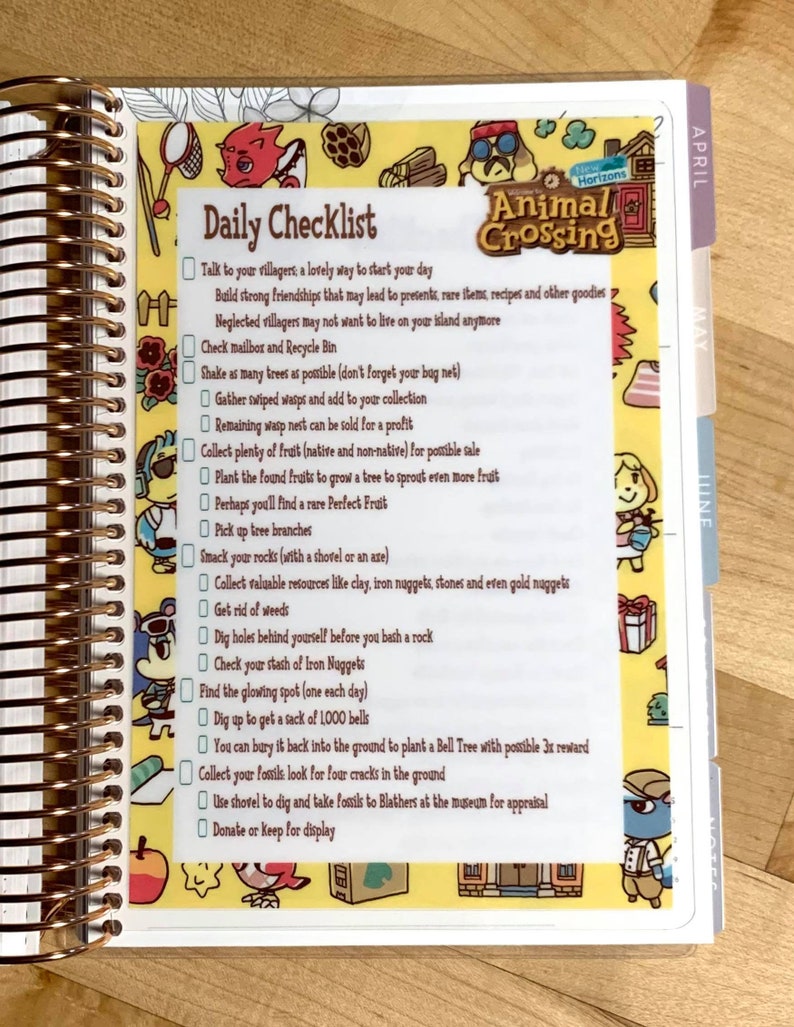 APRIL
New Horizons
Welcome to
Animal Crossing
Daily Checklist
Talk to your villagers; a lovely way to start your day
Build strong friendships that may lead to presents, rare items, recipes and other goodies
Neglected villagers may not want to live on your island anymore
MAY
Check mailbox and Recycle Bin
Shake as many trees as possible (don't forget your bug net)
Gather swiped wasps and add to your collection
Remaining wasp nest can be sold for a profit
Collect plenty of fruit (native and non-native) for possible sale
Plant the found fruits to grow a tree to sprout even more fruit
JUNE
Perhaps you'll find a rare Perfect Fruit
Pick up tree branches
Smack your rocks (with a shovel or an axe)
Collect valuable resources like clay, iron nuggets, stones and even gold nuggets
Get rid of weeds
Dig holes behind yourself before you bash a rock
Check your stash of Iron Nuggets
Find the glowing spot (one each day)
Dig up to get a sack of 1,000 bells
You can bury it back into the ground to plant a Bell Tree with possible 3x reward
Collect your fossils: look for four cracks in the ground
Use shovel to dig and take fossils to Blathers at the museum for appraisal
Donate or Keep for display
NOTES